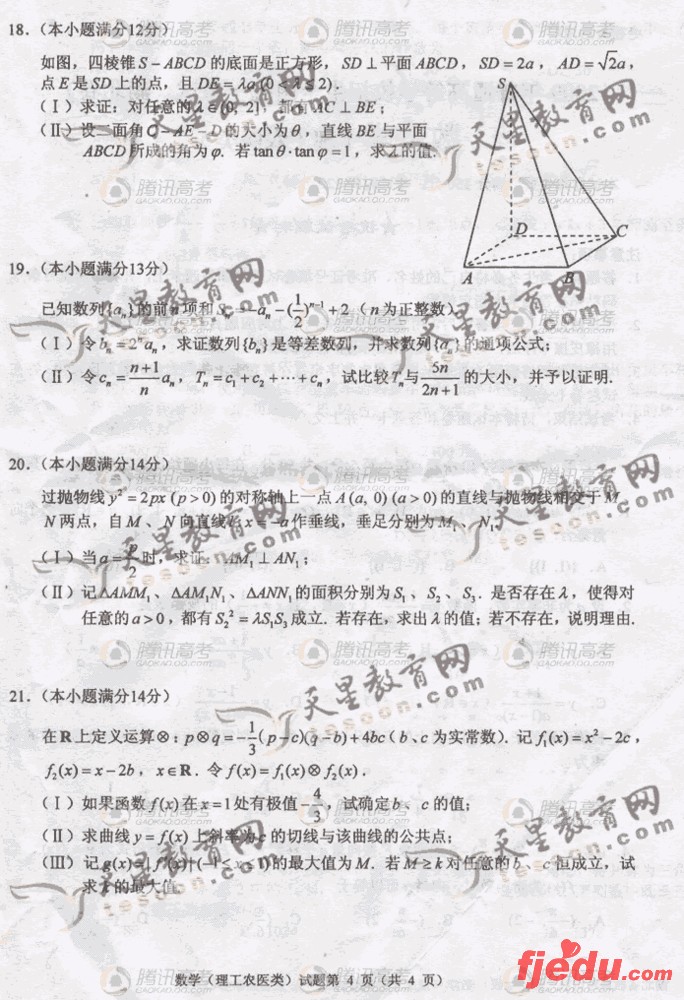 18.（本小题满分12分）
如图，四棱锥 S－ABCD 的底面是正方形，SD⊥平面 ABCD，SD＝2a，AD＝√2a，
点 E 是 SD 上的点，且 DE＝λa(0＜λ≤2).
（Ⅰ）求证：对任意的 λ∈(0, 2]，都有 AC⊥BE；
（Ⅱ）设二面角 C－AE－D 的大小为 θ，直线 BE 与平面
ABCD 所成的角为 φ. 若 tanθ·tanφ＝1，求 λ 的值.
S
D
C
A
B
19.（本小题满分13分）
已知数列{aₙ}的前 n 项和 Sₙ＝－aₙ－(1/2)ⁿ⁻¹＋2（n 为正整数）.
（Ⅰ）令 bₙ＝2ⁿaₙ，求证数列{bₙ}是等差数列，并求数列{aₙ}的通项公式；
（Ⅱ）令 cₙ＝(n+1)/n aₙ，Tₙ＝c₁＋c₂＋⋯＋cₙ，试比较 Tₙ 与 5n/(2n+1) 的大小，并予以证明.
20.（本小题满分14分）
过抛物线 y²＝2px (p＞0) 的对称轴上一点 A(a, 0) (a＞0) 的直线与抛物线相交于 M、
N 两点，自 M、N 向直线 l：x＝－a 作垂线，垂足分别为 M₁、N₁.
（Ⅰ）当 a＝p/2 时，求证：AM₁⊥AN₁；
（Ⅱ）记△AMM₁、△AM₁N₁、△ANN₁ 的面积分别为 S₁、S₂、S₃. 是否存在 λ，使得对
任意的 a＞0，都有 S₂²＝λS₁S₃ 成立. 若存在，求出 λ 的值；若不存在，说明理由.
21.（本小题满分14分）
在 R 上定义运算⊗：p⊗q＝－1/3(p－c)(q－b)＋4bc（b、c 为实常数）. 记 f₁(x)＝x²－2c，
f₂(x)＝x－2b，x∈R. 令 f(x)＝f₁(x)⊗f₂(x).
（Ⅰ）如果函数 f(x) 在 x＝1 处有极值－4/3，试确定 b、c 的值；
（Ⅱ）求曲线 y＝f(x) 上斜率为 c 的切线与该曲线的公共点；
（Ⅲ）记 g(x)＝|f′(x)|(－1≤x≤1) 的最大值为 M. 若 M≥k 对任意的 b、c 恒成立，试
求 k 的最大值.
数学（理工农医类）试题第 4 页（共 4 页）
腾讯高考
GAOKAO.QQ.COM
天星教育网
tesoon.com
fjedu.com